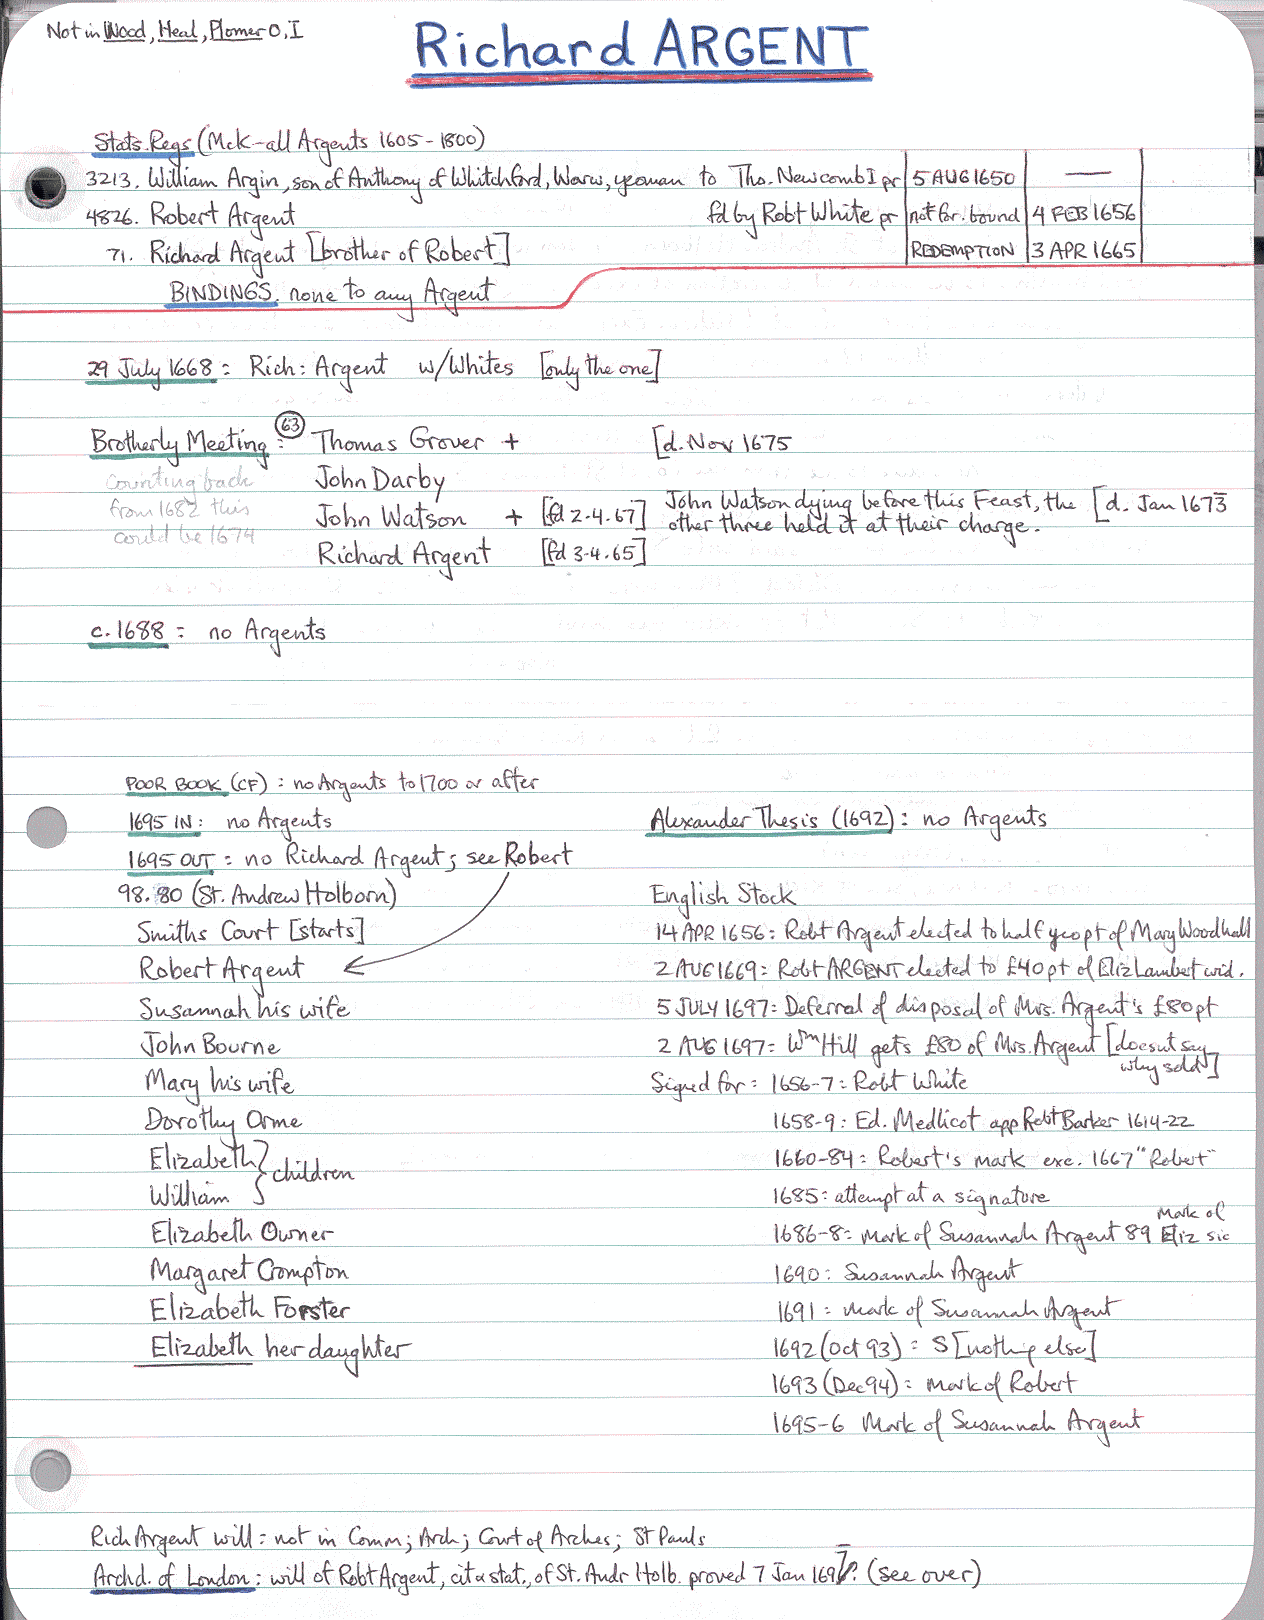 Not in Wood, Heal, Plomer O, I
Richard ARGENT
Stats. Regs (McK-all Argents 1605-1800)
3213. William Argin, son of Anthony of Whitchford, Warw, yeoman to Tho. Newcomb I pr 5 AUG 1650 —
4826. Robert Argent fd by Robt White pr not for. bound 4 FEB 1656
71. Richard Argent [brother of Robert] REDEMPTION 3 APR 1665
BINDINGS. none to any Argent
29 July 1668: Rich: Argent w/Whites [only the one]
Brotherly Meeting: 63 Thomas Grover + [d. Nov 1675
Counting back John Darby
from 1682 this John Watson + [fd 2-4.67] John Watson dying before this Feast, the [d. Jan 1673
could be 1674 other three held it at their charge.
Richard Argent [fd 3-4.65]
c. 1688: no Argents
POOR BOOK (CF): no Argents to 1700 or after
1695 IN: no Argents
Alexander Thesis (1692): no Argents
1695 OUT: no Richard Argent; see Robert
98.80 (St. Andrew Holborn)
Smiths Court [starts]
Robert Argent
Susannah his wife
John Bourne
Mary his wife
Dorothy Orme
Elizabeth } children
William
Elizabeth Owner
Margaret Compton
Elizabeth Forster
Elizabeth her daughter
English Stock
14 APR 1656: Robt Argent elected to half yeo pt of Mary Woodhall
2 AUG 1669: Robt ARGENT elected to £40 pt of Eliz Lambert wid.
5 JULY 1697: Deferral of disposal of Mrs. Argent's £80 pt
2 AUG 1697: Wm Hill gets £80 of Mrs. Argent [doesnt say
why sold]
Signed for: 1656-7: Robt White
1658-9: Ed. Medlicot app Robt Barker 1614-22
1660-84: Robert's mark exc. 1667 "Robert"
1685: attempt at a signature
1686-8: mark of Susannah Argent 89 Mark of Eliz sic
1690: Susannah Argent
1691: mark of Susannah Argent
1692 (Oct 93): S [nothing else]
1693 (Dec 94): mark of Robert
1695-6 Mark of Susannah Argent
Rich Argent will: not in Comm; Arch; Court of Arches; St Pauls
Archd. of London: will of Robt Argent, cit & stat., of St. Andr Holb. proved 7 Jan 1697/8. (see over)